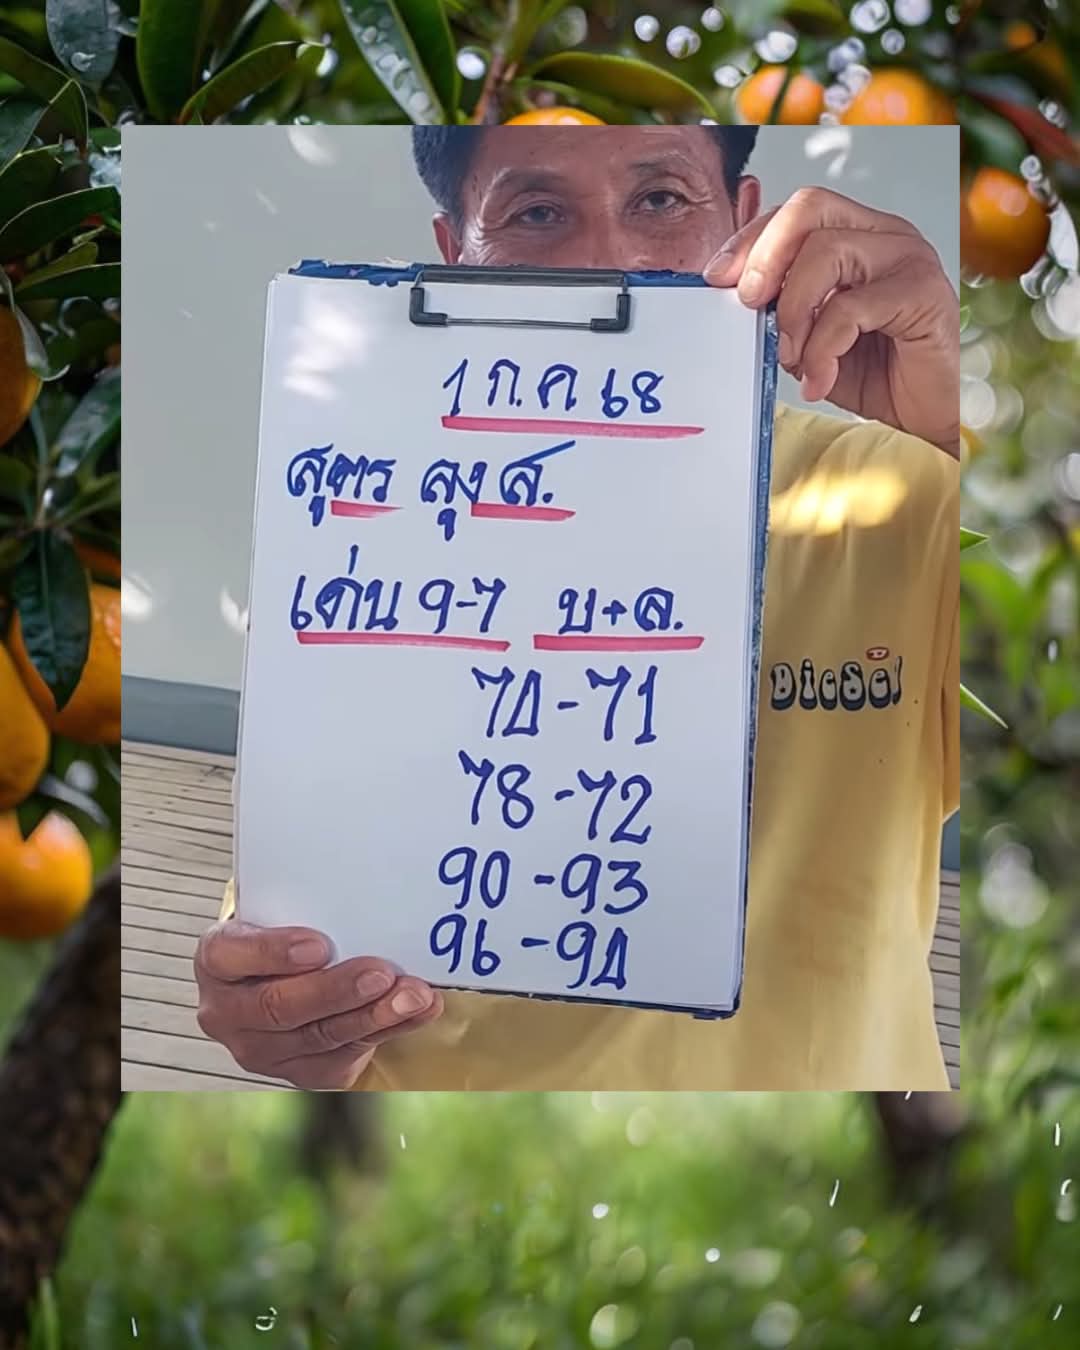 1 ก.ค 68
สูตร ลุง ส.
เด่น 9-7 บ+ล.
74-71
78-72
90-93
96-94
DieSel